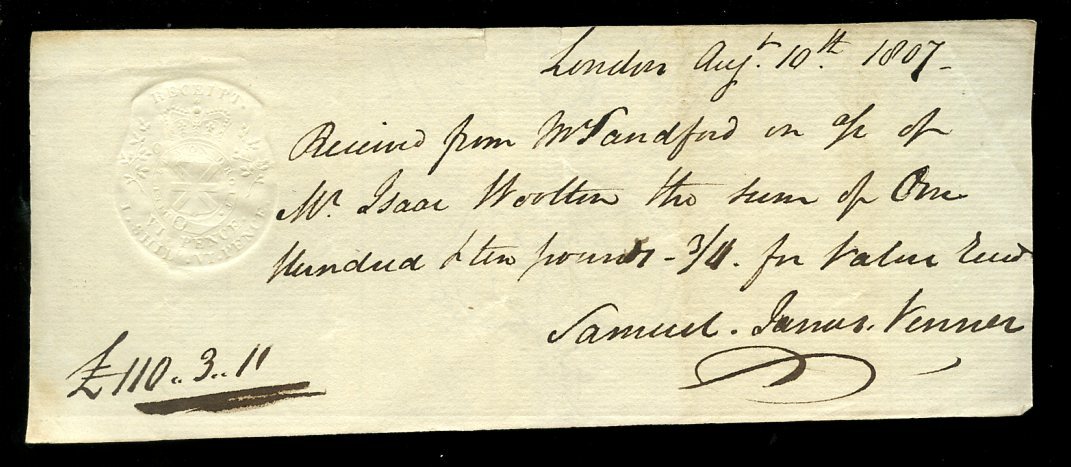 London Augt. 10th. 1807-
RECEIPT
Received from Mr Sandford on a/c of
Mr. Isaac Wootten the sum of One
Hundred & ten pounds - 3/11. for Value Recd
XI PENCE
Samuel. James. Venner
£110..3..11